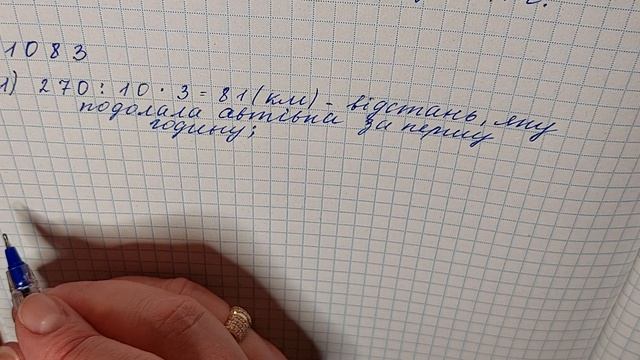 1083
1) 270 : 10 · 3 = 81 (км) - відстань, яку
подолала автівка за першу
годину;